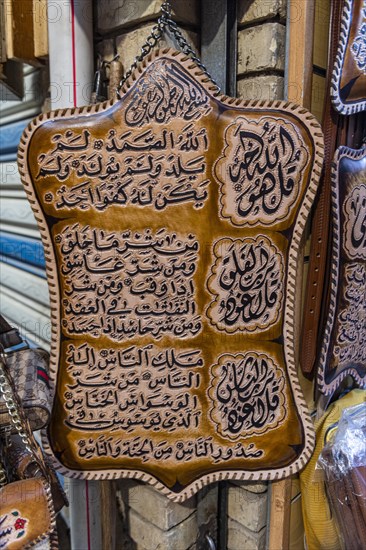 بسم الله الرحمن الرحيم
قل هو الله أحد
الله الصمد لم
يلد ولم يولد ولم
يكن له كفوا أحد
قل أعوذ برب الفلق
من شر ما خلق
ومن شر غاسق
إذا وقب ومن شر
النفثت في العقد
ومن شر حاسد إذا حسد
قل أعوذ برب الناس
ملك الناس إله
الناس من شر
الوسواس الخناس
الذي يوسوس في
صدور الناس من الجنة والناس